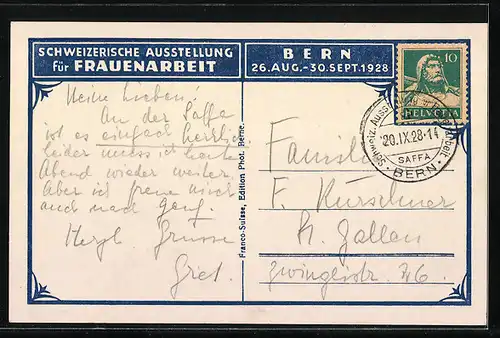 SCHWEIZERISCHE AUSSTELLUNG
für FRAUENARBEIT
BERN
26. AUG.-30. SEPT. 1928
10
HELVETIA
Schweiz. Auss
20.IX.28-14
SAFFA
BERN
Meine Lieben!
An der Saffa
ist es einfach herrlich
leider muss ich heute
Abend wieder weiter.
Aber ich freue mich
auch nach Genf.
Herzl Grüsse
Gret.
Franco-Suisse, Edition Phot. Berne.
Familie
F. Kürsteiner
St. Gallen
Zwinglistr. 46.